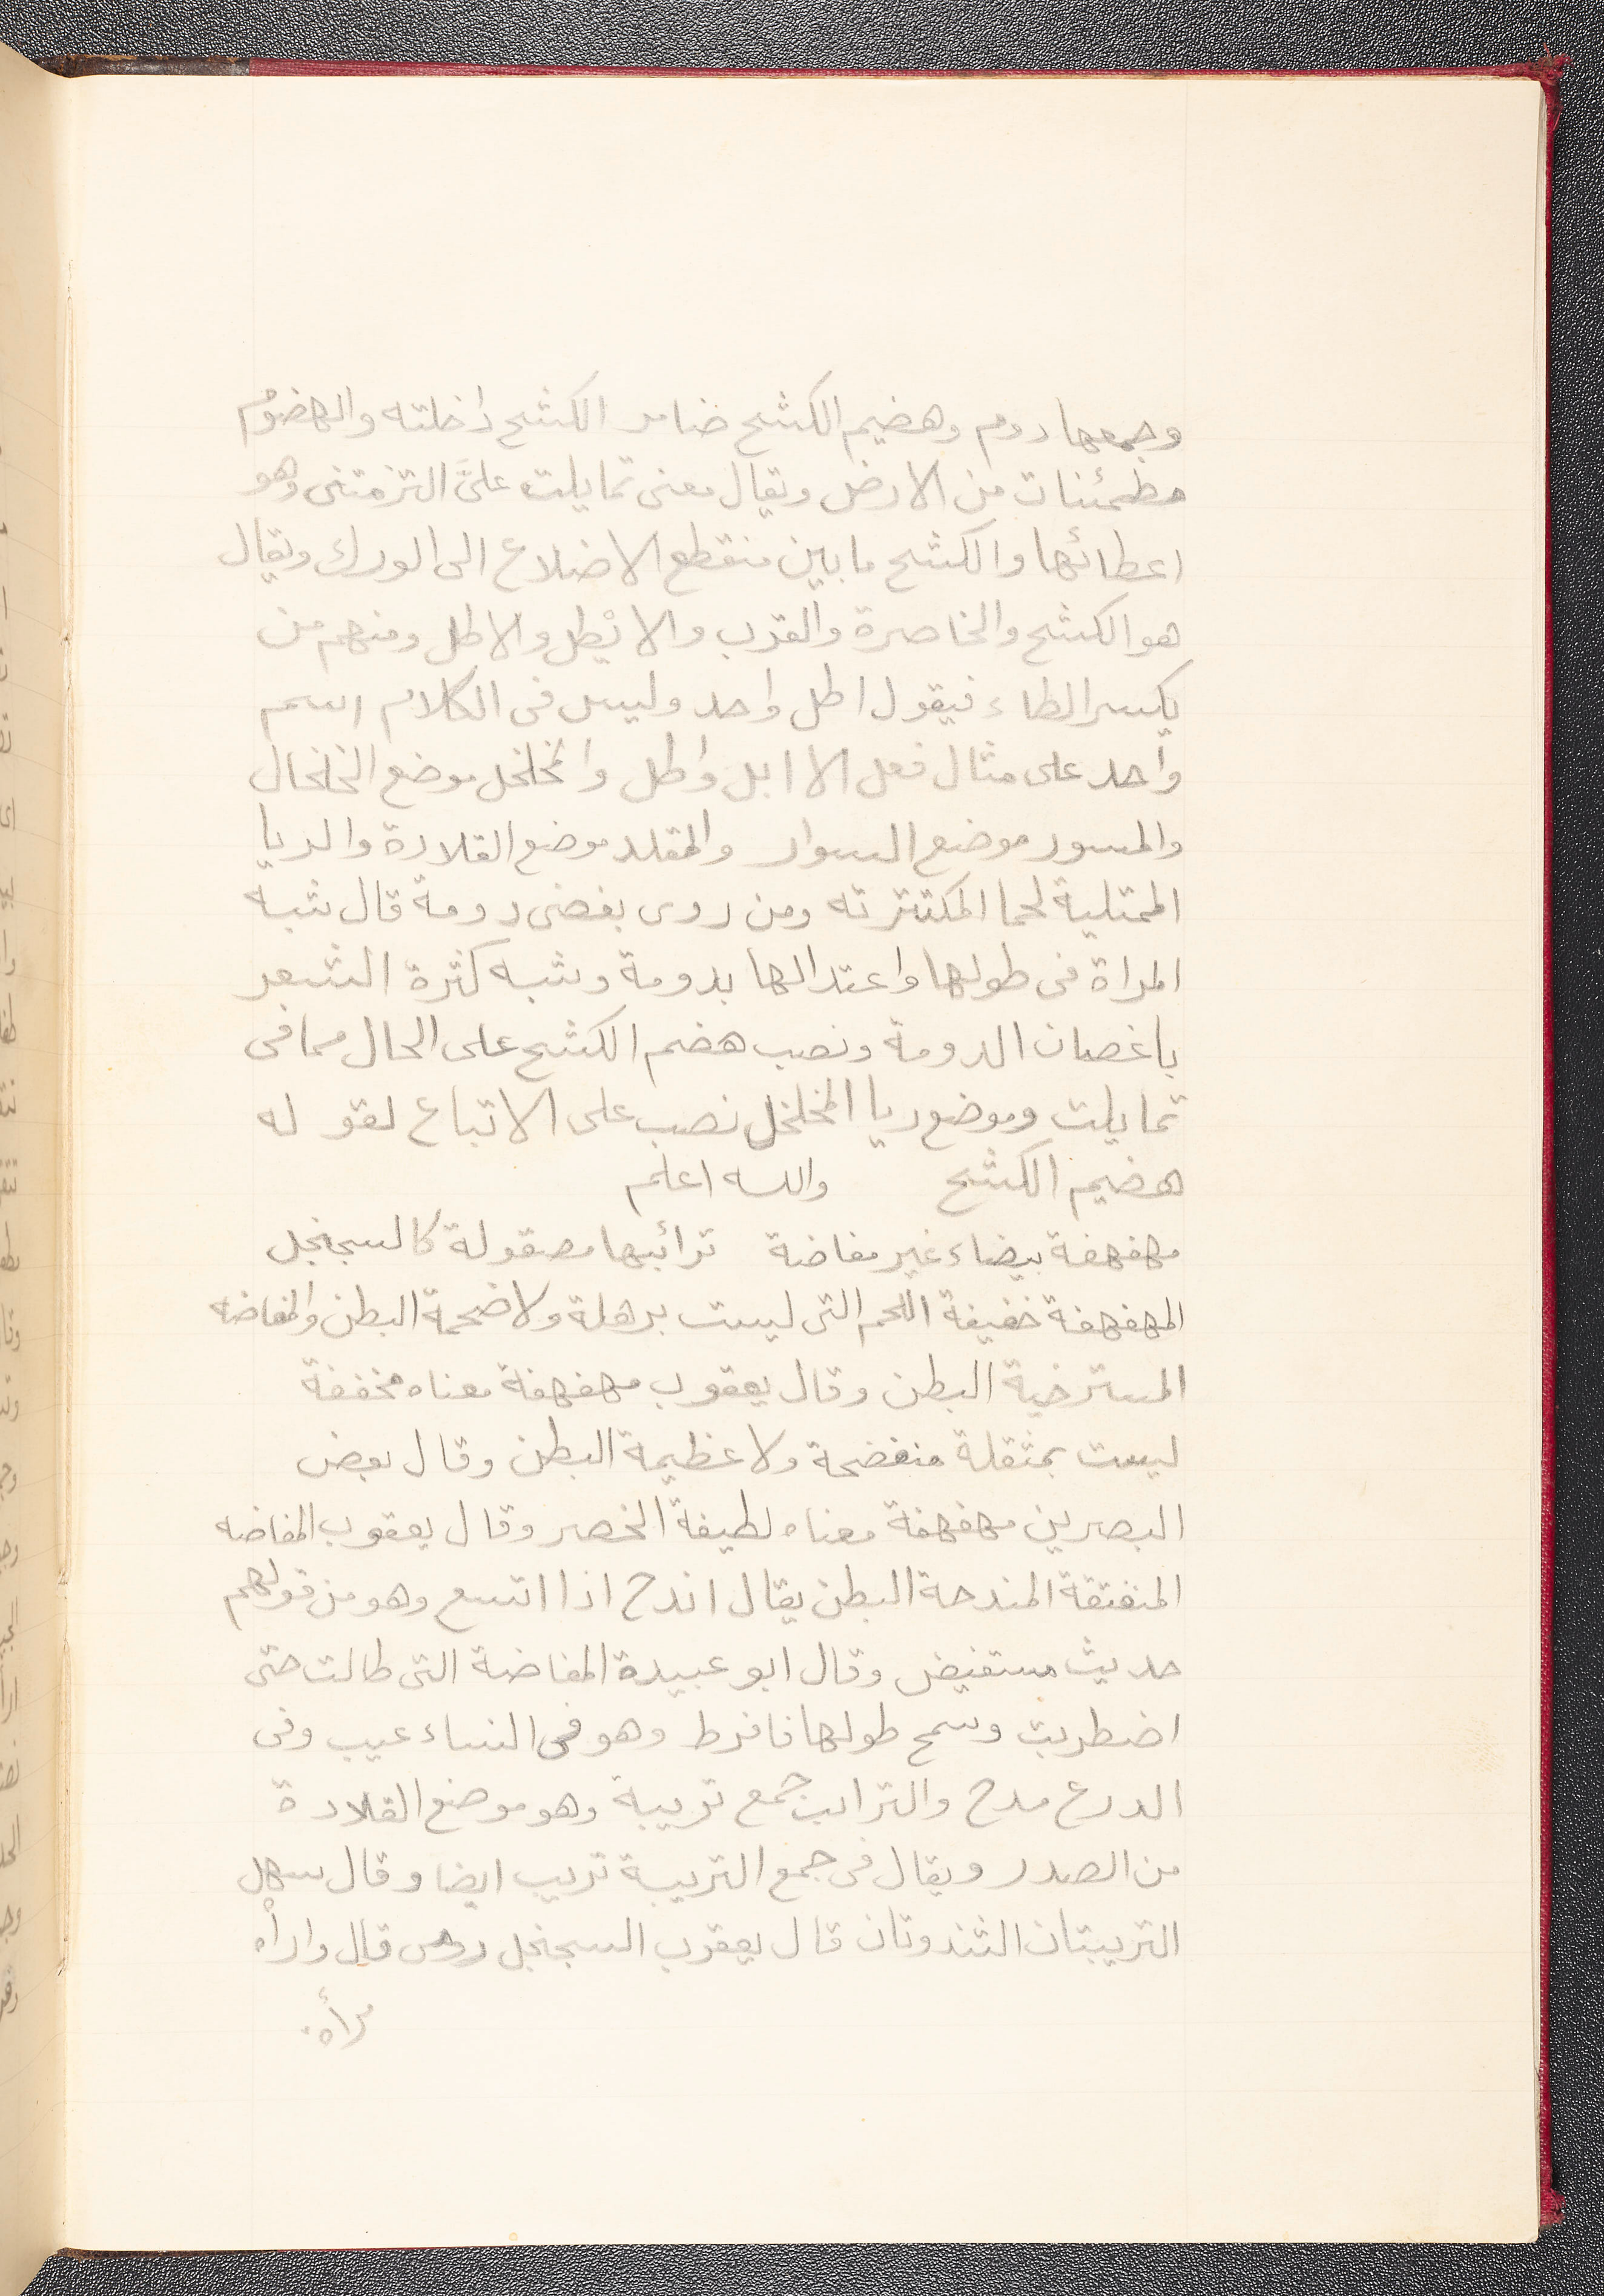 وجمعها دوم وهضيم الكشح ضامر الكشح داخلته والهضوم
مطمئنات من الارض ويقال معنى تمايلت علىَّ التزمتنى وهو
اعطائها والكشح ما بين منقطع الاضلاع الى الورك ويقال
هو الكشح والخاصرة والقرب والايْطل والاطل ومنهم من
يكسر الطاء فيقول اطل واحد وليس فى الكلام اسم
واحد على مثال فعل الا ابل واطل والمخلخل موضع الخلخال
والمسور موضع السوار والمقلد موضع القلادة والريا
الممتلية لحما المكتنزته ومن روى بغصنى دومة قال شبه
المراة فى طولها واعتدالها بدومة وشبه كثرة الشعر
باغصان الدومة ونصب هضم الكشح على الحال مما فى
تمايلت وموضع ريا المخلخل نصب على الاتباع لقوله
هضيم الكشح والله اعلم
مهفهفة بيضاء غير مفاضة ترائبها مصقولة كالسجنجل
المهفهفة خفيفة اللحم التى ليست برهلة ولا ضخمة البطن والمفاضه
المسترخية البطن وقال يعقوب مهفهفة معناه مخففة
ليست بمثقلة منفضحة ولا عظيمة البطن وقال بعض
البصرين مهفهفة معناه لطيفة الخصر وقال يعقوب المفاضه
المنفتقة المندحة البطن يقال اندح اذا اتسع وهو من قولهم
حديث مستفيض وقال ابو عبيدة المفاضة التى طالت حتى
اضطربت وسمج طولها فافرط وهو فى النساء عيب وفى
الدرع مدح والترايب جمع تريبة وهو موضع القلادة
من الصدر ويقال فى جمع التريبة تريب ايضا وقال سهل
التريبتان الثندوتان قال يعقوب السجنجل قال واراه
مرأة